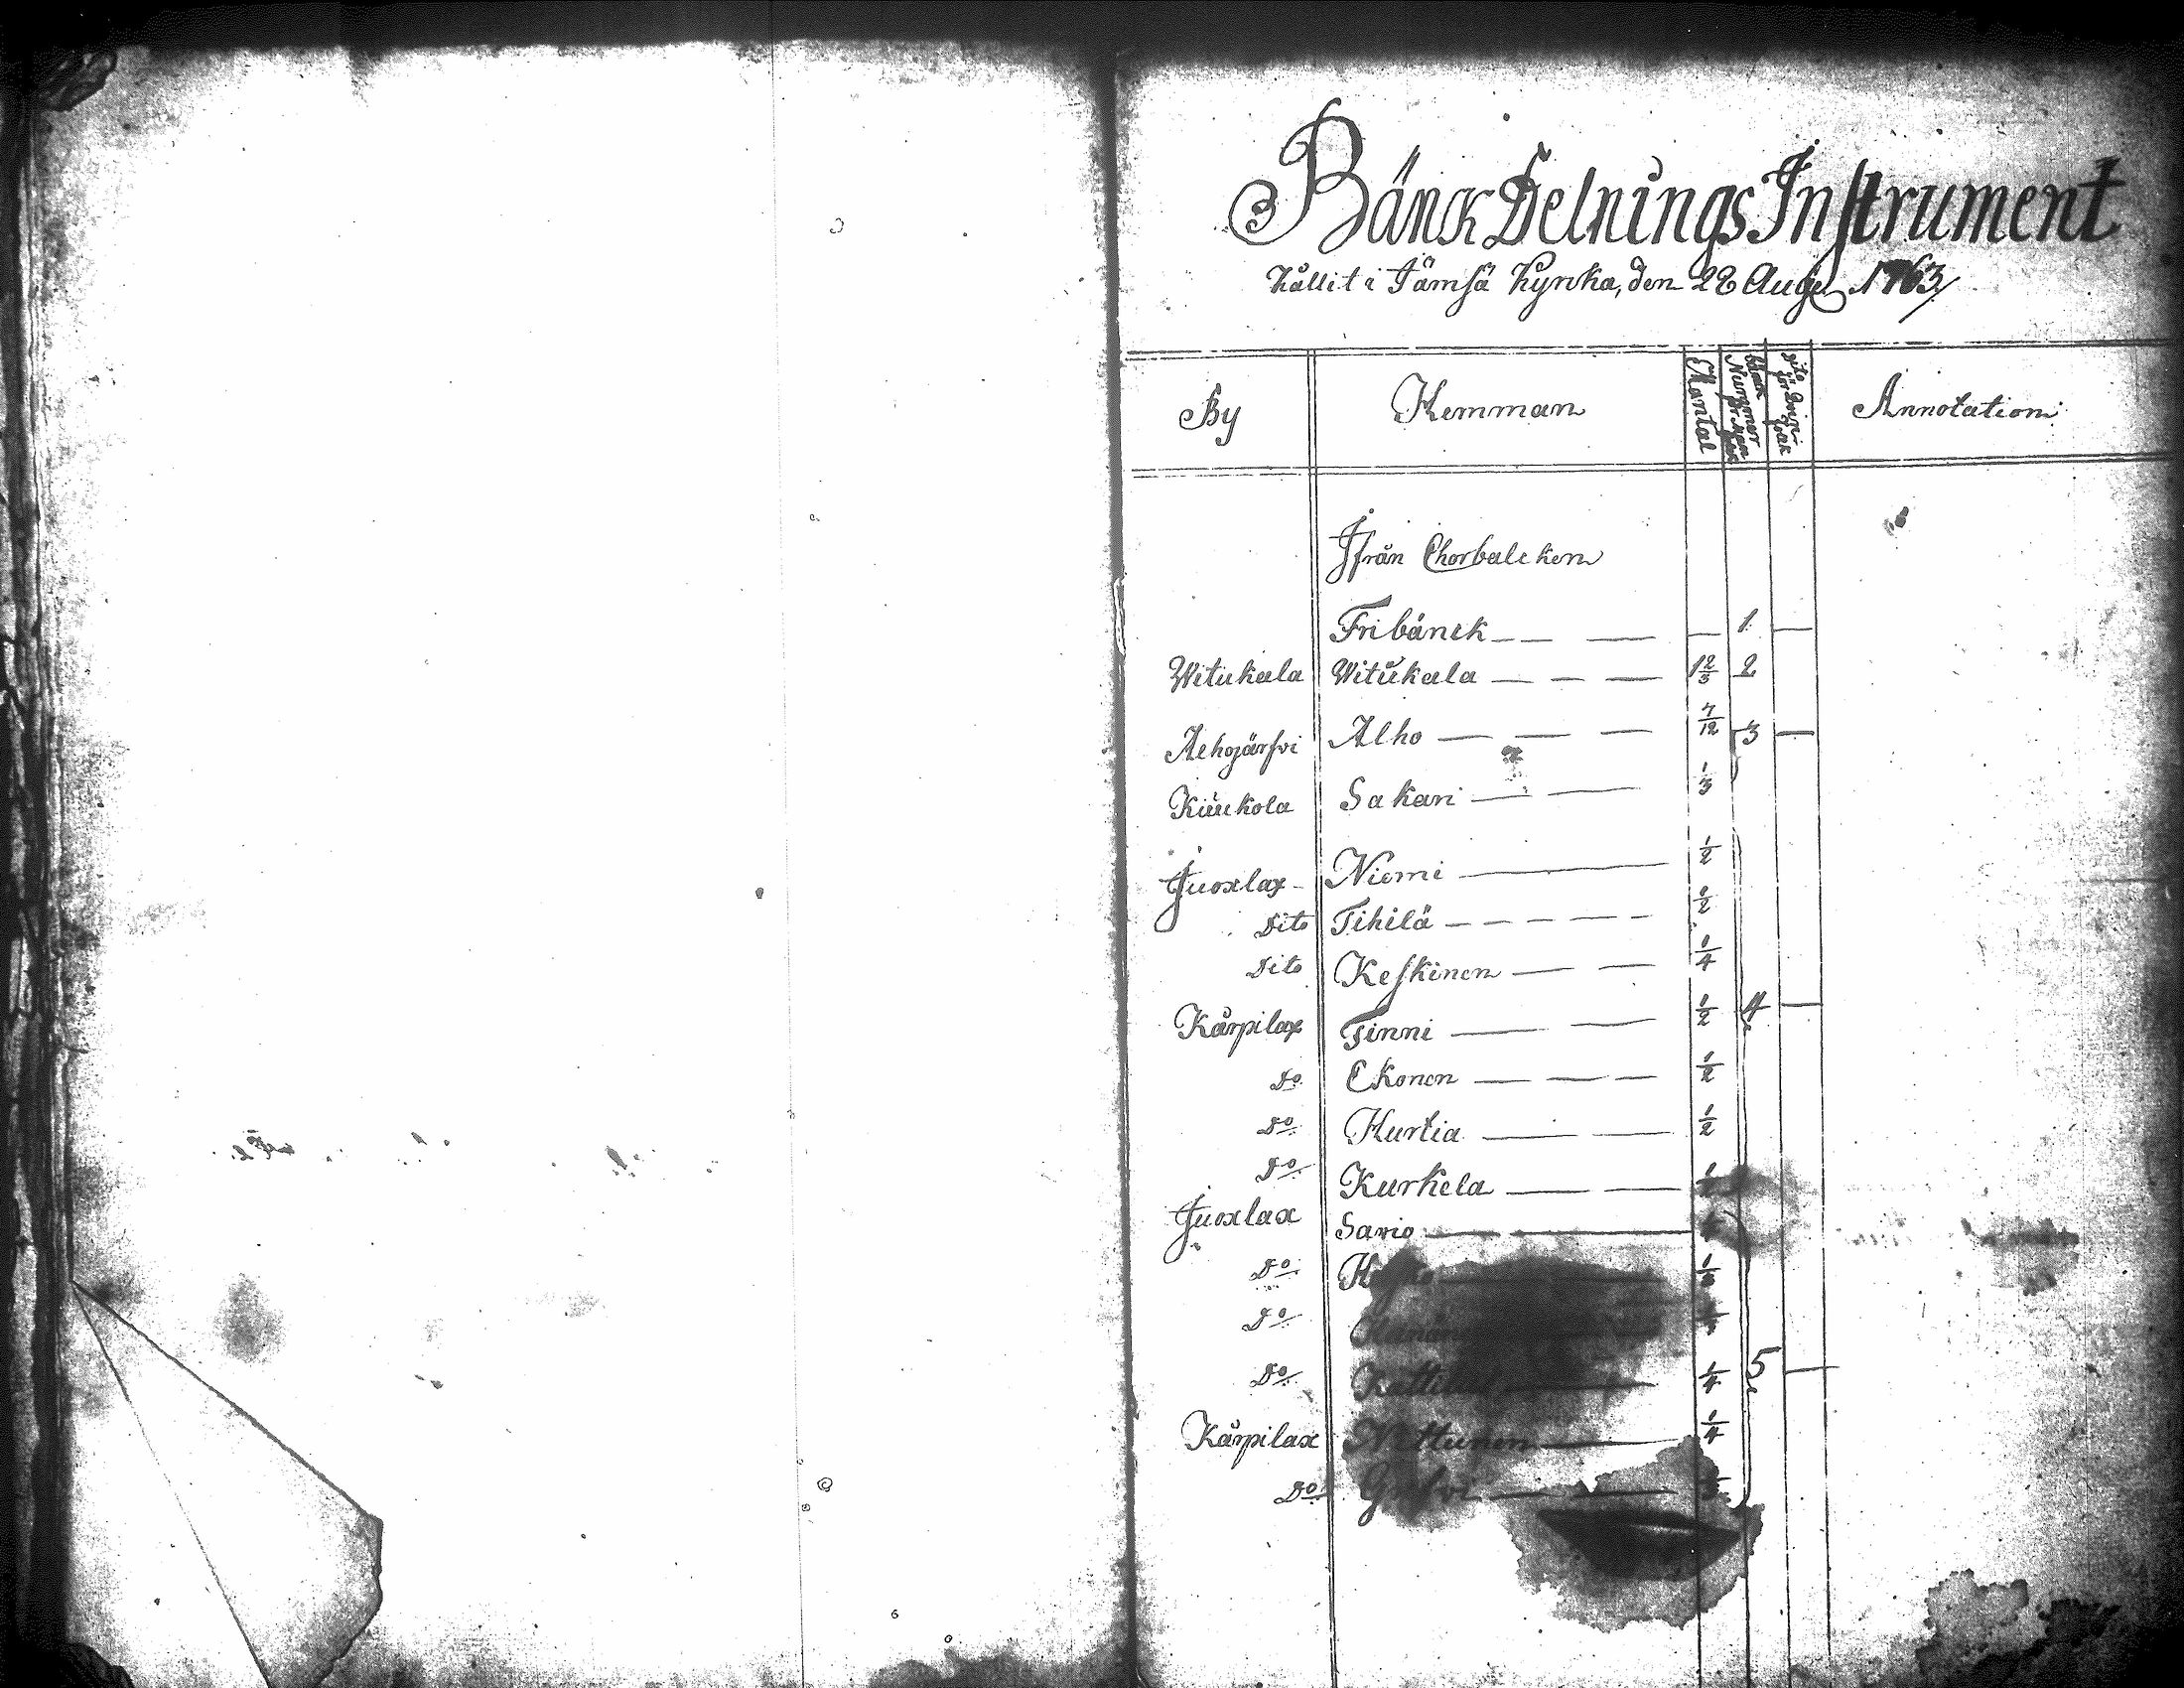 BänckDelnings Instrument
hållit i Jämsä Kyrka, den 28 Aug. 1763
By Hemman Mantal Annotation
Ifrån Chorbalcken
Fribänck — — — — 1. —
Witukala Witukala — — — 1 2/3 2
Alhojärfvi Alho — — — 7/12 3 —
Kuukola Sakari — — 1/3
Juoxlax Niemi — 1/2
Dito Tihilä — — — — — 1/2
Dito Keskinen — — 1/4
Kärpilax Tinni — — 1/2 4 —
Do Ekonen — — — 1/2
Do Hurtia — — 1/2
Do Kurkela — —
Juoxlax Savio — —
Do
Do
Do 1/4 5 —
Kärpilax 1/4
Do